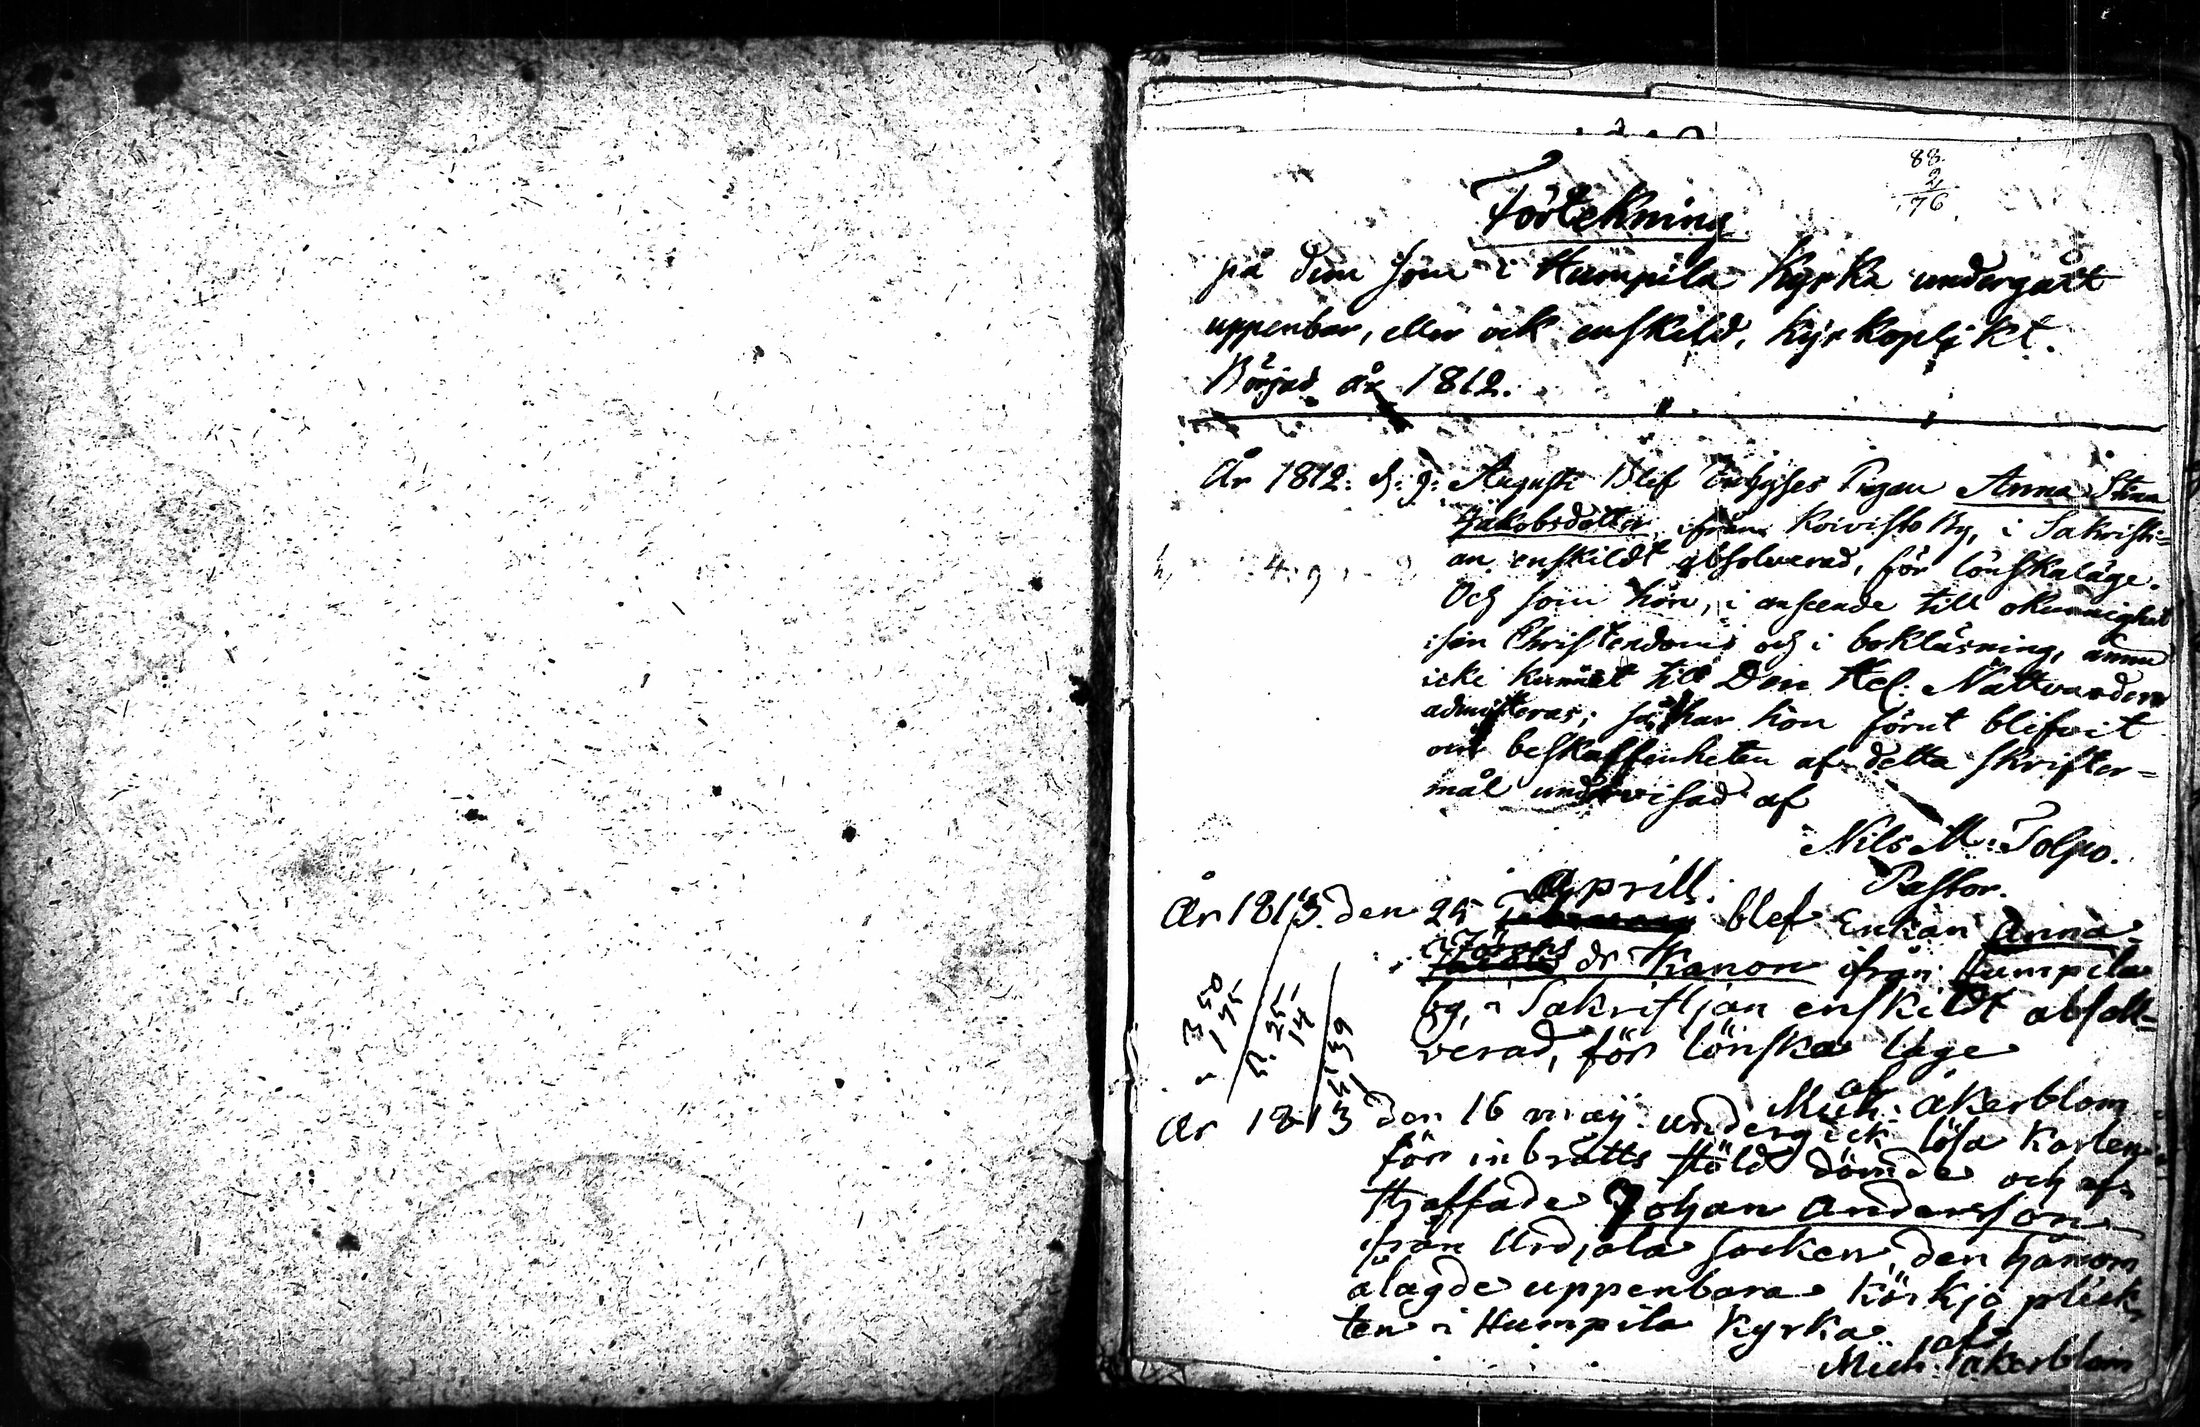 88
2
76
Förtekning
på dem som i Humpila Kyrka undergått
uppenbar, eller ock enskild, Kyrkoplikt.
Börjad år 1812.
År 1812. d. 9. Augusti Blef Pigan Anna Stina
Jakobsdotter ifrån Koivisto By, i Sakristi=
an enskildt absolverad, för lönskaläge.
Och som hon, i anseende till okunnighet
i sin Christendom och i bokläsning, ännu
icke kunnat till Den Hel. Nattvarden
admitteras; så har hon förut blifvit
om beskaffenheten af detta skrifter=
mål undervisad af
Nils M. Tolpo.
Pastor.
Aprill.
År 1813. den 25 blef Enkan Anna
dr Kanon ifrån Humpila
by, i Sakristjan enskildt absoll=
verad, för lönska läge
af
Mich. Åkerblom
År 1813 den 16 may undergick lösa Karlen
för inbrotts stöld dömde och af=
straffade Johan Andersson
från Urdjala socken, den honom
alagde uppenbara Körkjo plick
ten i Humpila Kyrka
af
Mich. Åkerblom
3 50
1 75
25
14
39